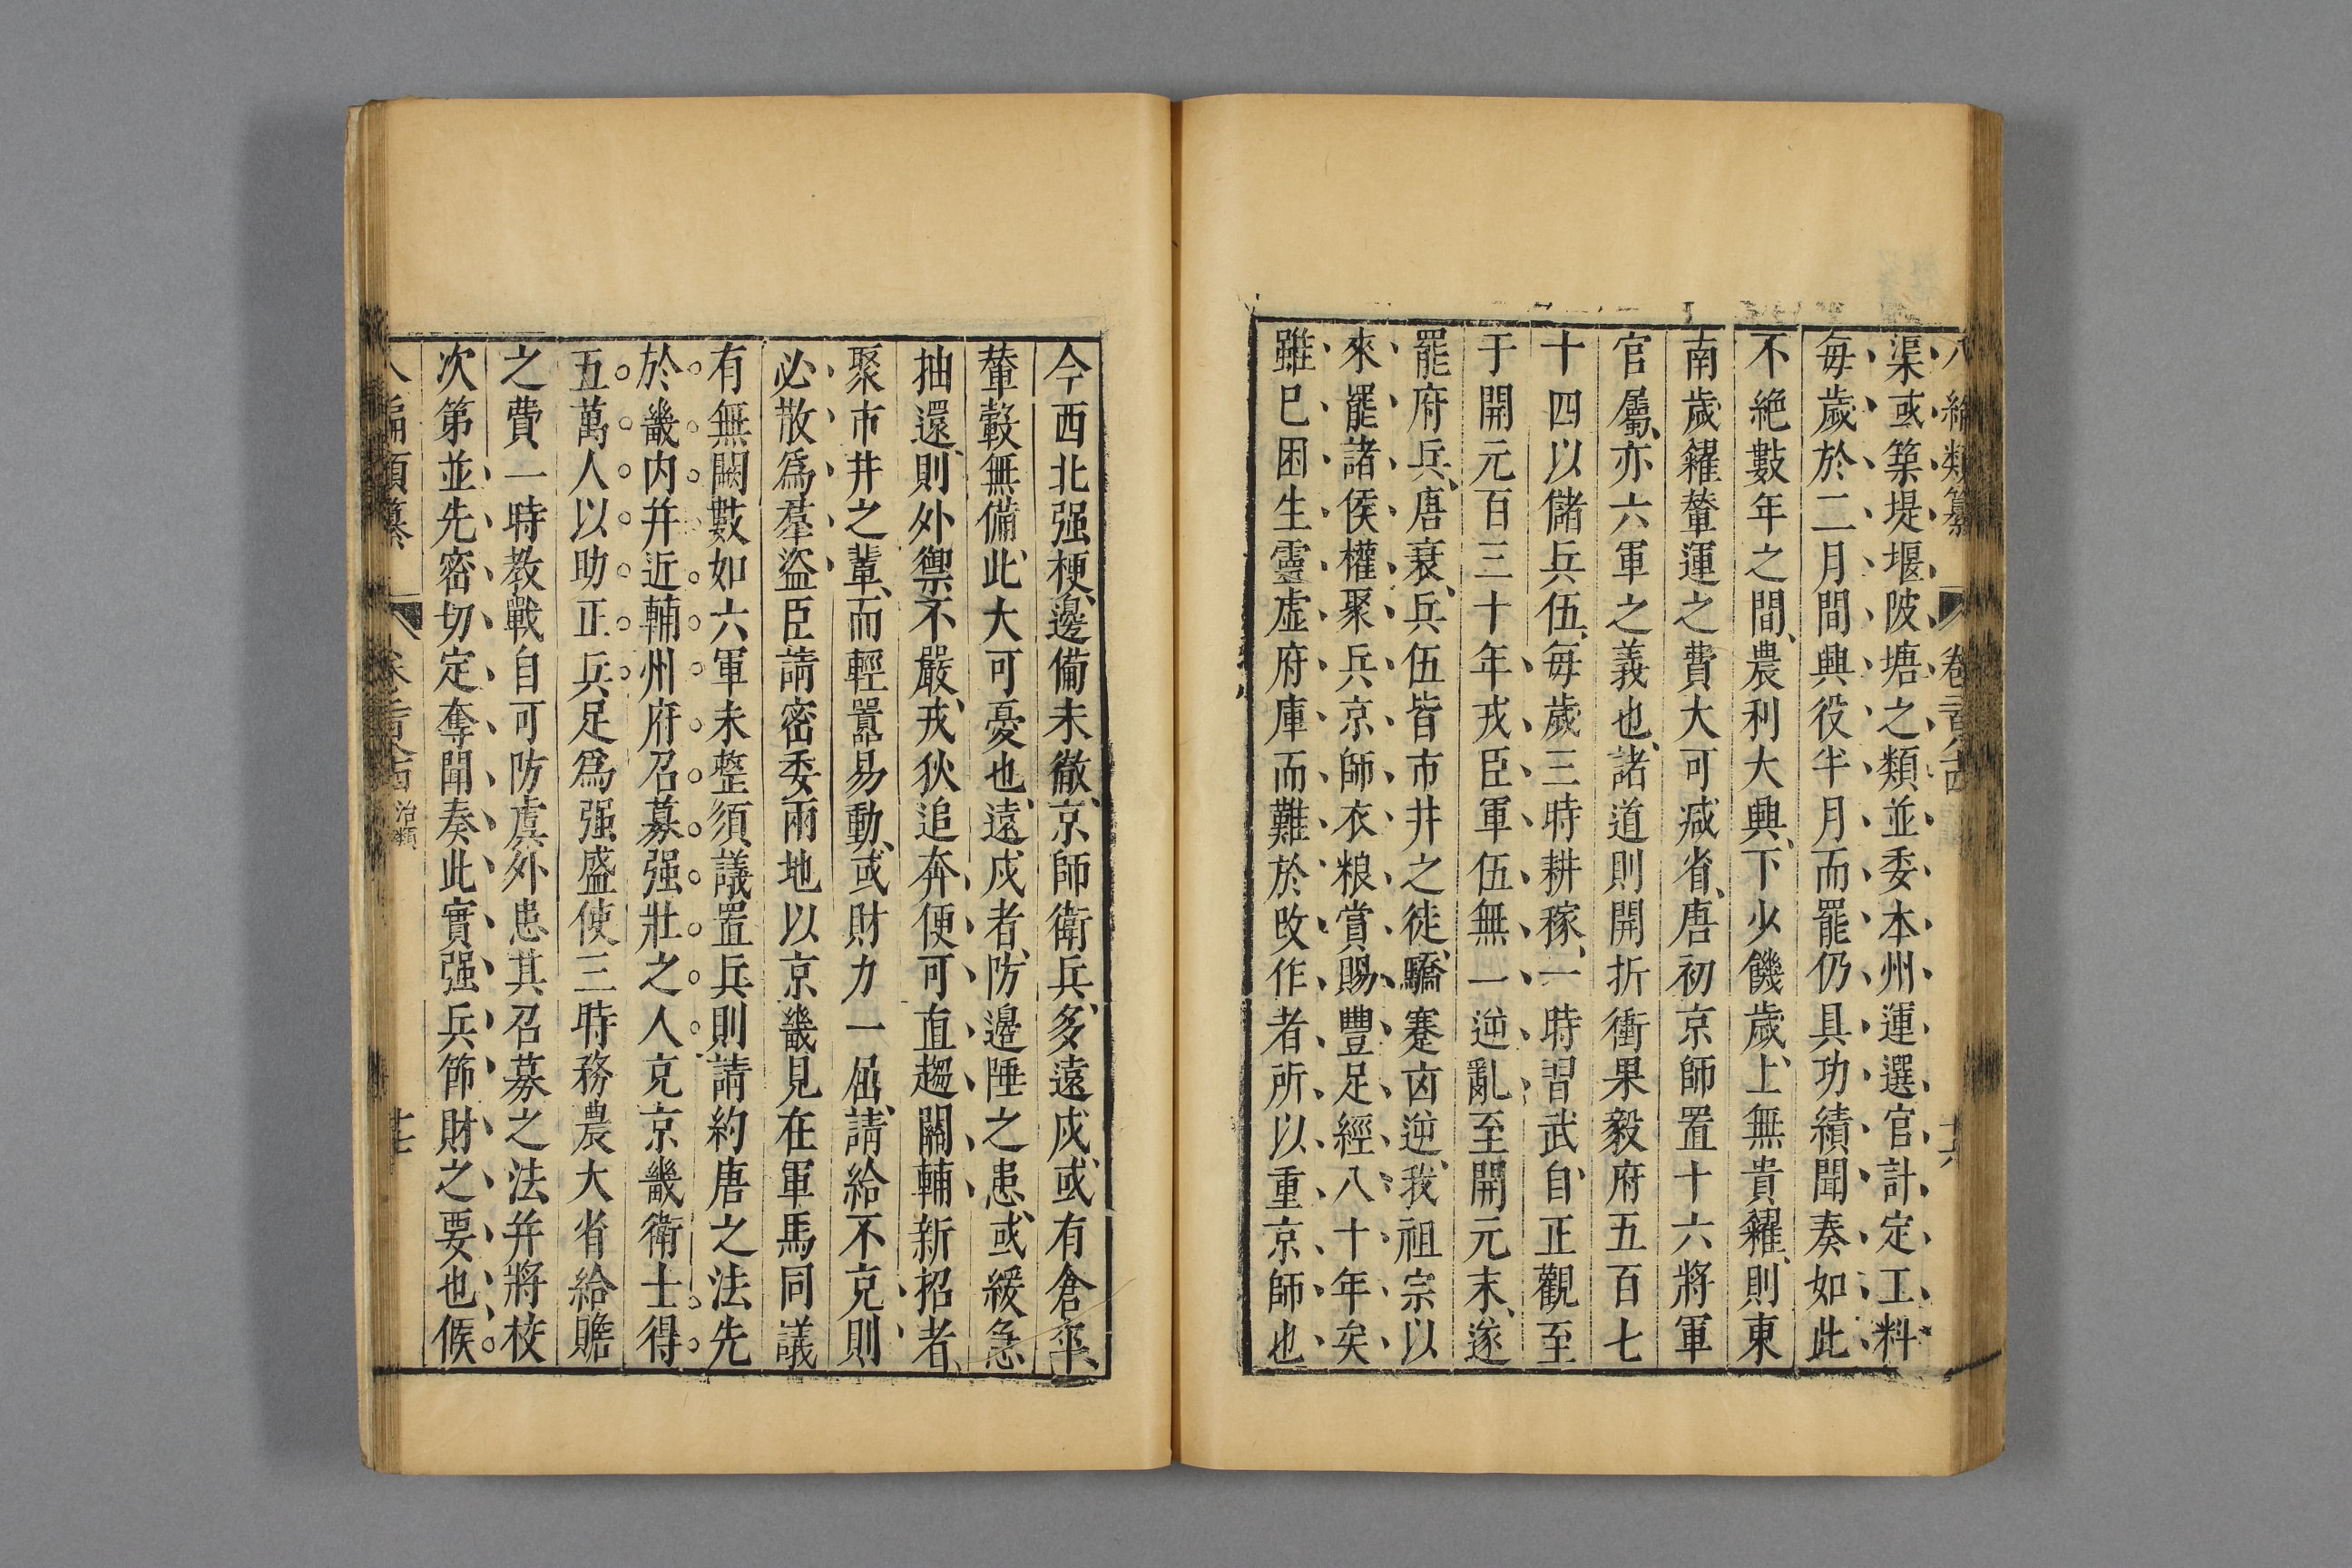 渠或築堤堰陂塘之類並委本州運選官計定工料
每歲於二月間興役半月而罷仍具功績聞奏如此
不絶數年之間農利大興下少饑歲上無貴糴則東
南歲糴輦運之費大可减省唐初京師置十六將軍
官屬亦六軍之義也諸道則開折衝果毅府五百七
十四以儲兵伍每歲三時耕稼一時習武自正觀至
于開元百三十年戎臣軍伍無一逆亂至開元末遂
罷府兵唐衰兵伍皆市井之徒驕蹇凶逆我祖宗以
來罷諸侯權聚兵京師衣粮賞賜豐足經八十年矣
雖已困生靈虛府庫而難於改作者所以重京師也
今西北强梗邊備未徹京師衛兵多遠戍或有倉卒
輦轂無備此大可憂也遠戍者防邊陲之患或緩急
抽還則外禦不嚴戎狄追奔便可直趨關輔新招者
聚市井之輩而輕囂易動或財力一屈請給不克則
必散爲羣盜臣請密委兩地以京畿見在軍馬同議
有無闕數如六軍未整須議置兵則請約唐之法先
於畿內并近輔州府召募强壯之人克京畿衛士得
五萬人以助正兵足爲强盛使三時務農大省給贍
之費一時教戰自可防虞外患其召募之法并將校
次第並先密切定奪聞奏此實强兵節財之要也候